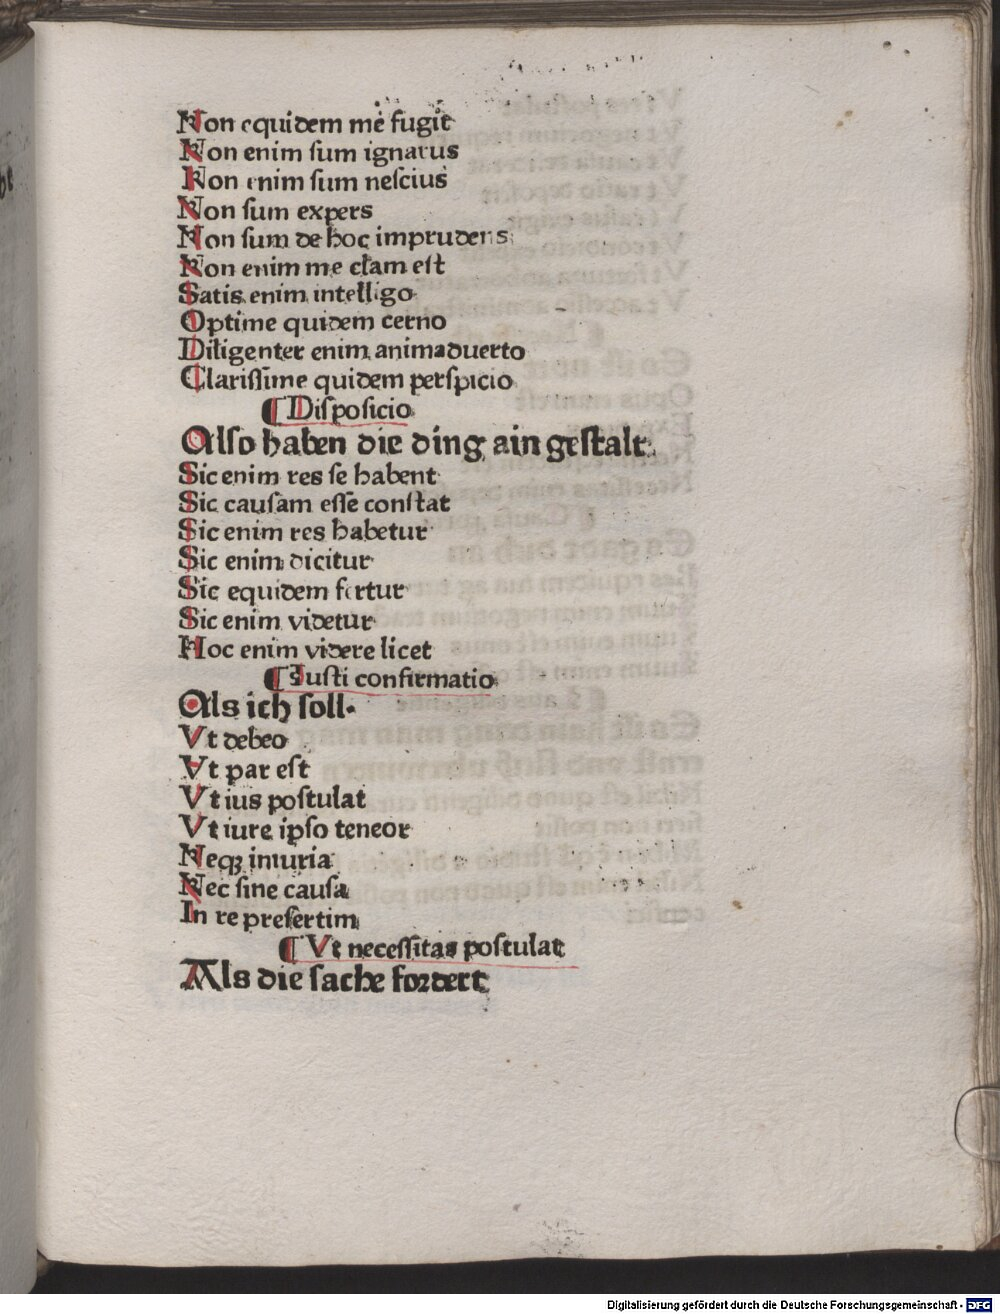 Non equidem me fugit
Non enim ſum ignarus
Non enim ſum neſcius
Non ſum expers
Non ſum de hoc imprudens
Non enim me clam eſt
Satis enim intelligo
Optime quidem cerno
Diligenter enim animaduerto
Clariſſime quidem perſpicio
¶ Diſpoſicio
Alſo haben die ding ain geſtalt.
Sic enim res ſe habent
Sic cauſam eſſe conſtat
Sic enim res habetur
Sic enim dicitur
Sic equidem fertur
Sic enim videtur
Hoc enim videre licet
¶ Iuſti confirmatio
Als ich ſoll.
Vt debeo
Vt par eſt
Vt ius poſtulat
Vt iure ipſo teneor
Neqꝫ iniuria
Nec ſine cauſa
In re preſertim
¶ Vt neceſſitas poſtulat
Als die ſache fordert
Digitalisierung gefördert durch die Deutsche Forschungsgemeinschaft - DFG